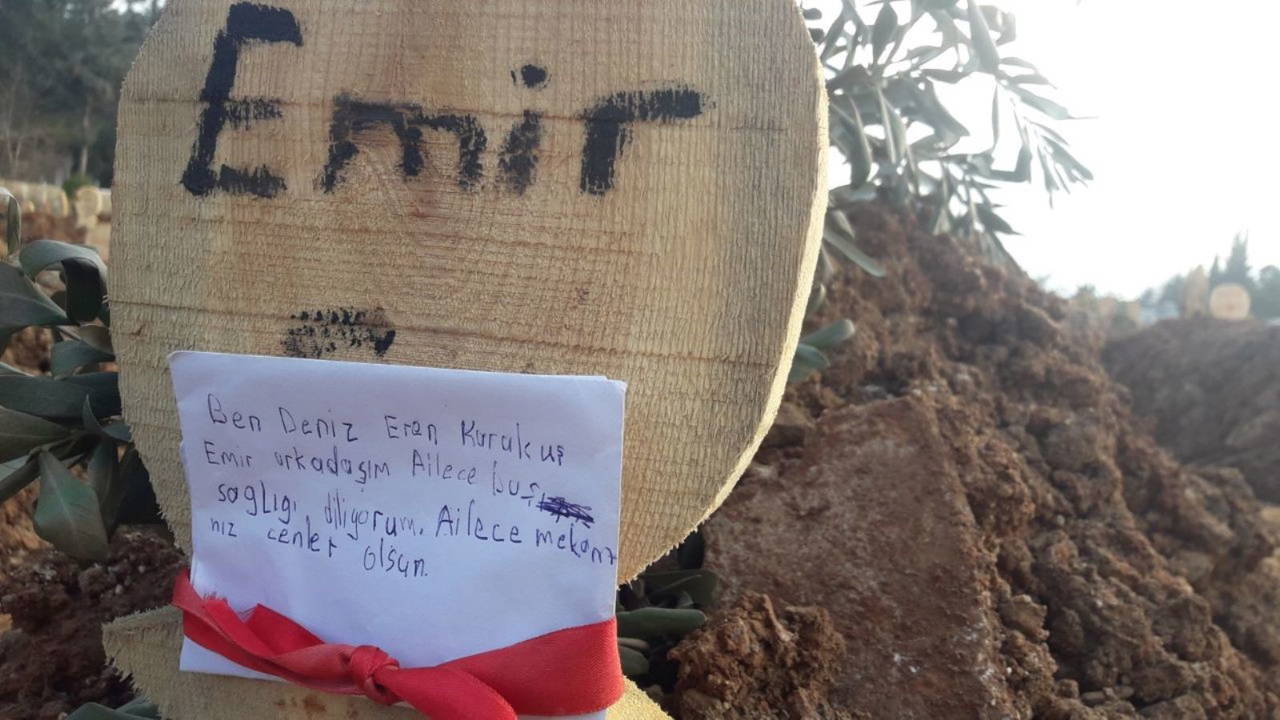 Emir
Ben Deniz Eren Karakuş
Emir arkadaşım Ailece baş
sağlığı diliyorum. Ailece mekanı
nız cenlet olsun.